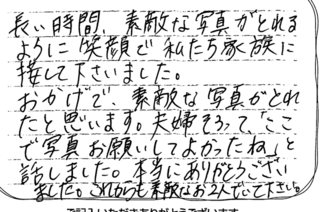 長い時間、素敵な写真がとれる
ように笑顔で私たち家族に
接して下さいました。
おかげで、素敵な写真がとれ
たと思います。夫婦そろって、「ここ
で写真お願いしてよかったね」と
話しました。本当にありがとうござい
ました。これからも素敵なお2人でいて下さい。
ご記入いただきありがとうございます